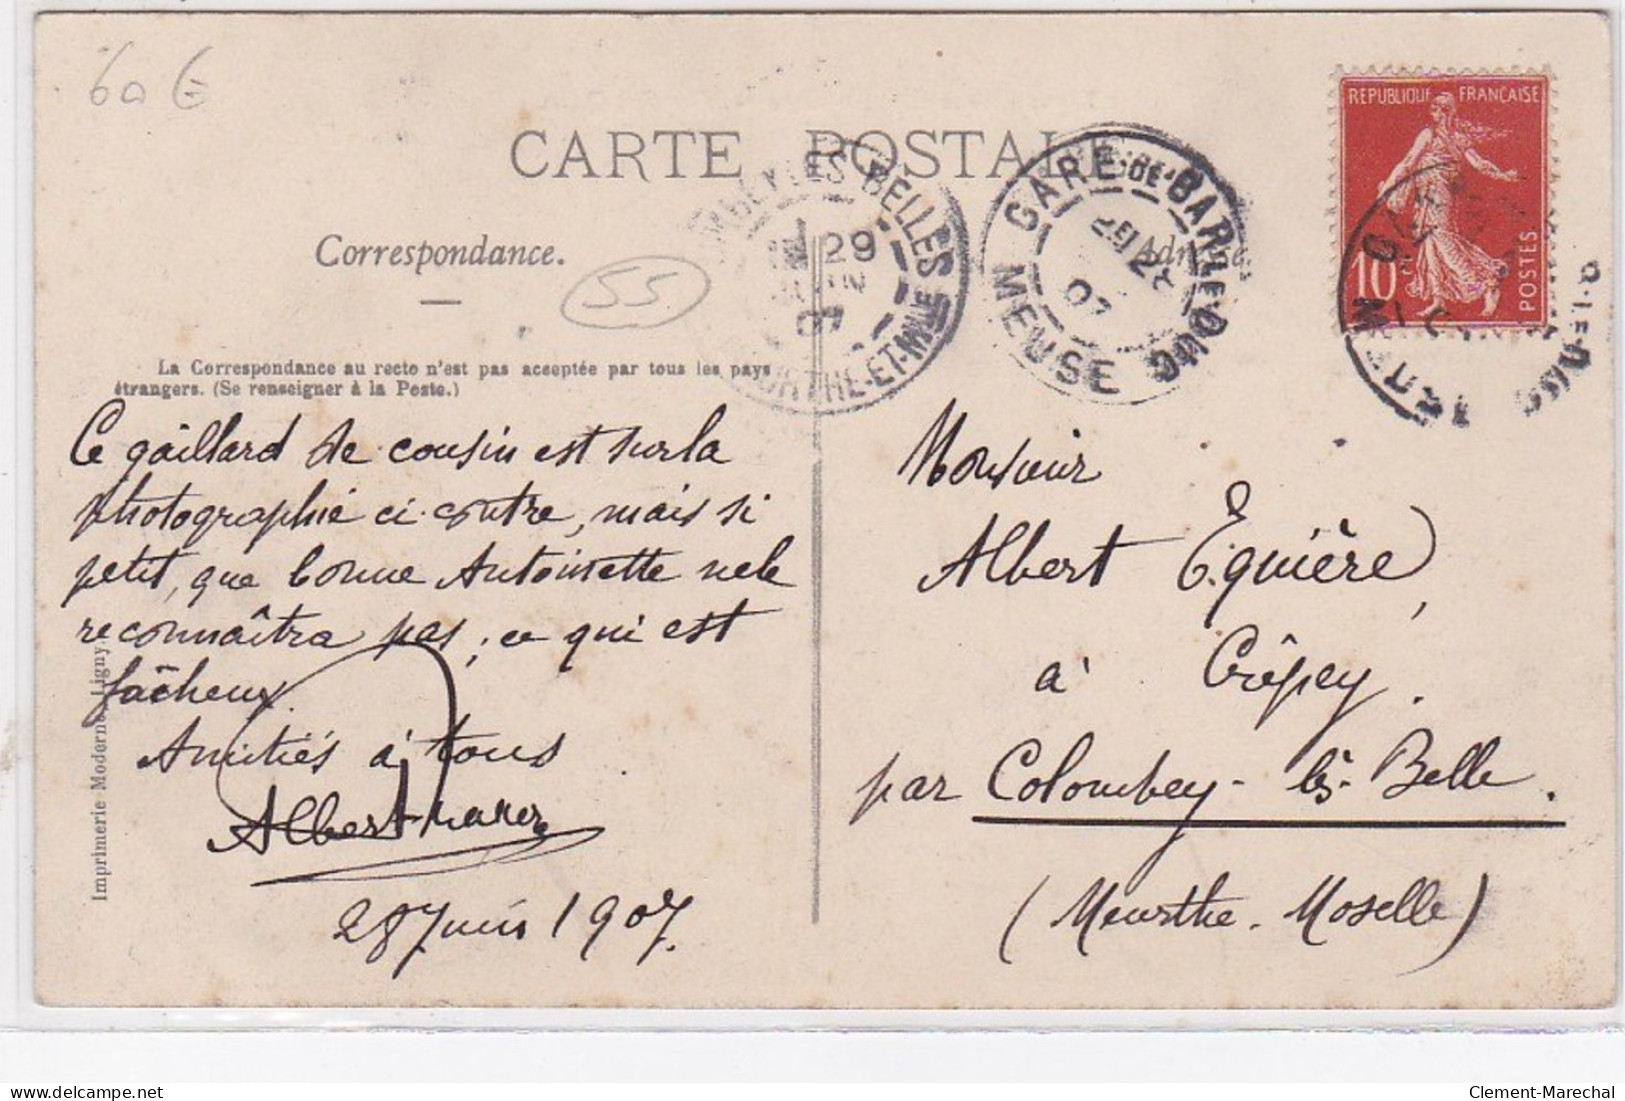 60 €
CARTE POSTALE
Correspondance.
55
La Correspondance au recto n'est pas acceptée par tous les pays
étrangers. (Se renseigner à la Poste.)
Ce gaillard de cousin est sur la
photographie ci-contre, mais si
petit, que bonne Antoinette ne le
reconnaîtra pas ; ce qui est
fâcheux.
Amitiés à tous
Albert
28 Juin 1907.
Imprimerie Moderne, Ligny
BELLES
29
JUIN
07
MEURTHE-ET-MLLE
GARE DE BAR-LE-DUC
07
MEUSE
REPUBLIQUE FRANÇAISE
10c
POSTES
GARE
Monsieur
Albert Equière,
à Crépey.
par Colombey-lès-Belle.
(Meurthe-Moselle)
Clement-Marechal